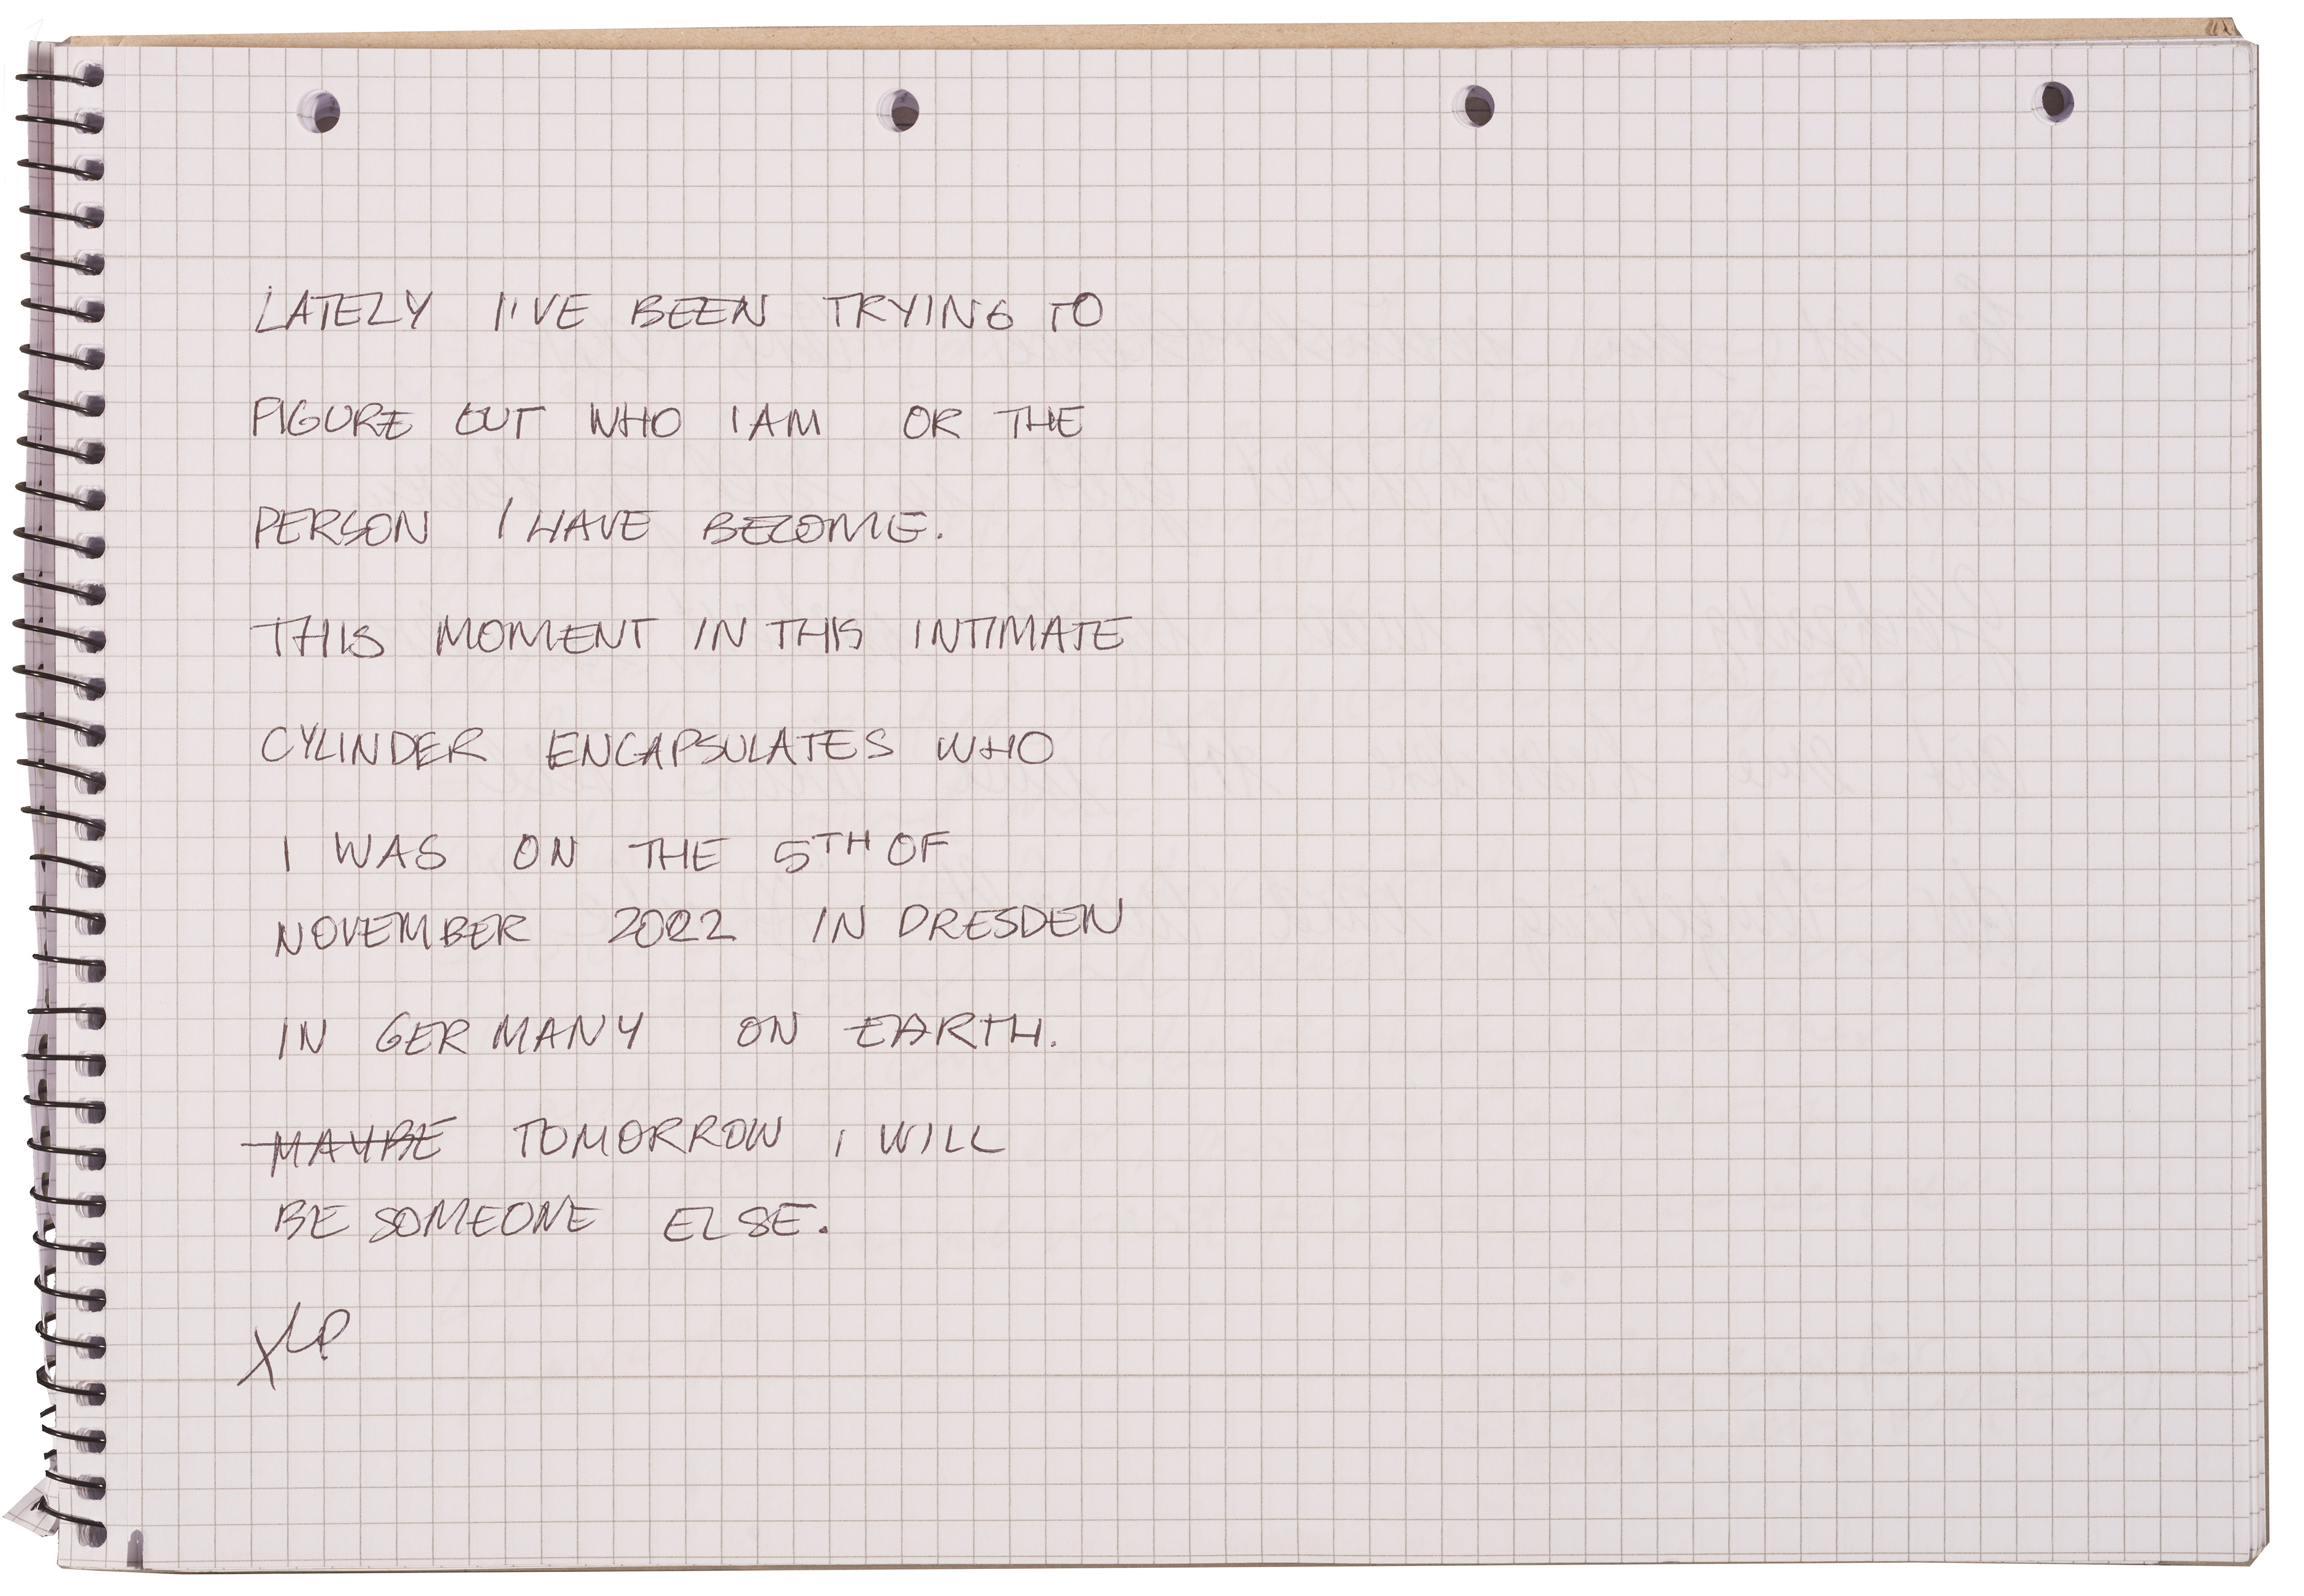 LATELY I'VE BEEN TRYING TO
FIGURE OUT WHO I AM OR THE
PERSON I HAVE BECOME.
THIS MOMENT IN THIS INTIMATE
CYLINDER ENCAPSULATES WHO
I WAS ON THE 5TH OF
NOVEMBER 2022 IN DRESDEN
IN GERMANY ON EARTH.
MAYBE TOMORROW I WILL
BE SOMEONE ELSE.